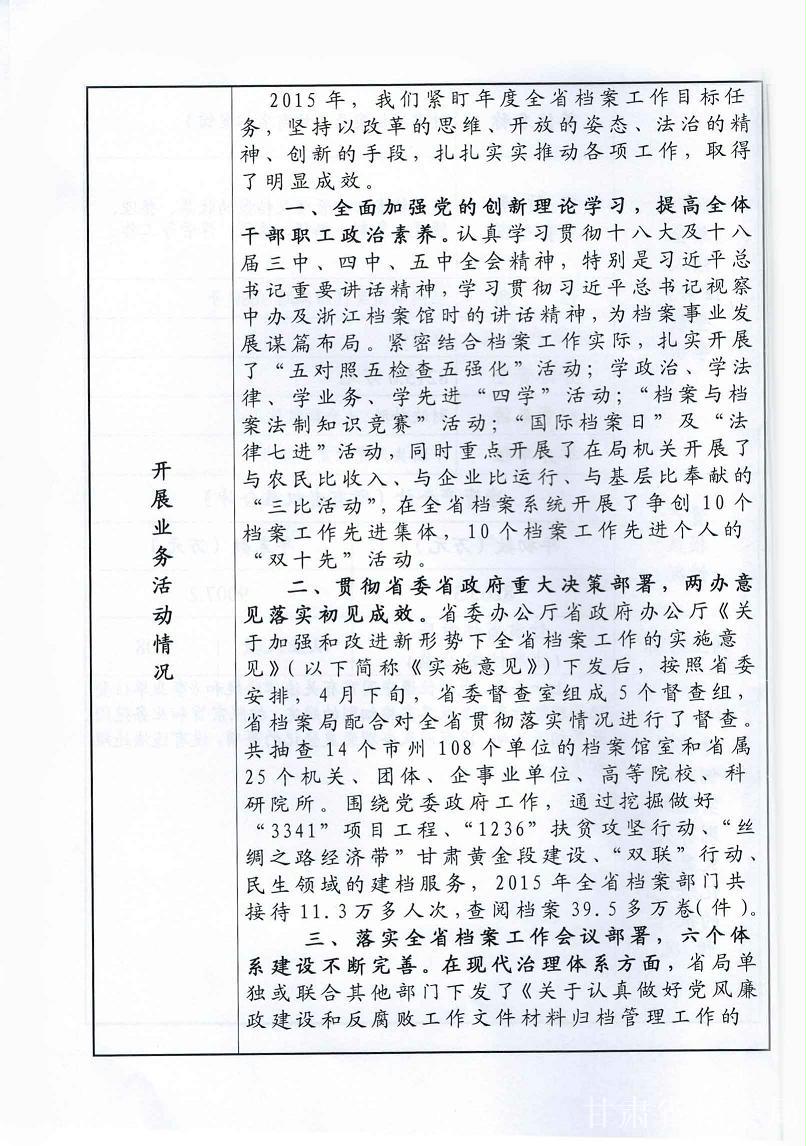 开展业务活动情况
2015年，我们紧盯年度全省档案工作目标任
务，坚持以改革的思维、开放的姿态、法治的精
神、创新的手段，扎扎实实推动各项工作，取得
了明显成效。
一、全面加强党的创新理论学习，提高全体
干部职工政治素养。认真学习贯彻十八大及十八
届三中、四中、五中全会精神，特别是习近平总
书记重要讲话精神，学习贯彻习近平总书记视察
中办及浙江档案馆时的讲话精神，为档案事业发
展谋篇布局。紧密结合档案工作实际，扎实开展
了“五对照五检查五强化”活动；学政治、学法
律、学业务、学先进“四学”活动；“档案与档
案法制知识竞赛”活动；“国际档案日”及“法
律七进”活动，同时重点开展了在局机关开展了
与农民比收入、与企业比运行、与基层比奉献的
“三比活动”，在全省档案系统开展了争创10个
档案工作先进集体，10个档案工作先进个人的
“双十先”活动。
二、贯彻省委省政府重大决策部署，两办意
见落实初见成效。省委办公厅省政府办公厅《关
于加强和改进新形势下全省档案工作的实施意
见》(以下简称《实施意见》)下发后，按照省委
安排，4月下旬，省委督查室组成5个督查组，
省档案局配合对全省贯彻落实情况进行了督查。
共抽查14个市州108个单位的档案馆室和省属
25个机关、团体、企事业单位、高等院校、科
研院所。围绕党委政府工作，通过挖掘做好
“3341”项目工程、“1236”扶贫攻坚行动、“丝
绸之路经济带”甘肃黄金段建设、“双联”行动、
民生领域的建档服务，2015年全省档案部门共
接待11.3万多人次，查阅档案39.5多万卷(件)。
三、落实全省档案工作会议部署，六个体
系建设不断完善。在现代治理体系方面，省局单
独或联合其他部门下发了《关于认真做好党风廉
政建设和反腐败工作文件材料归档管理工作的
甘肃省